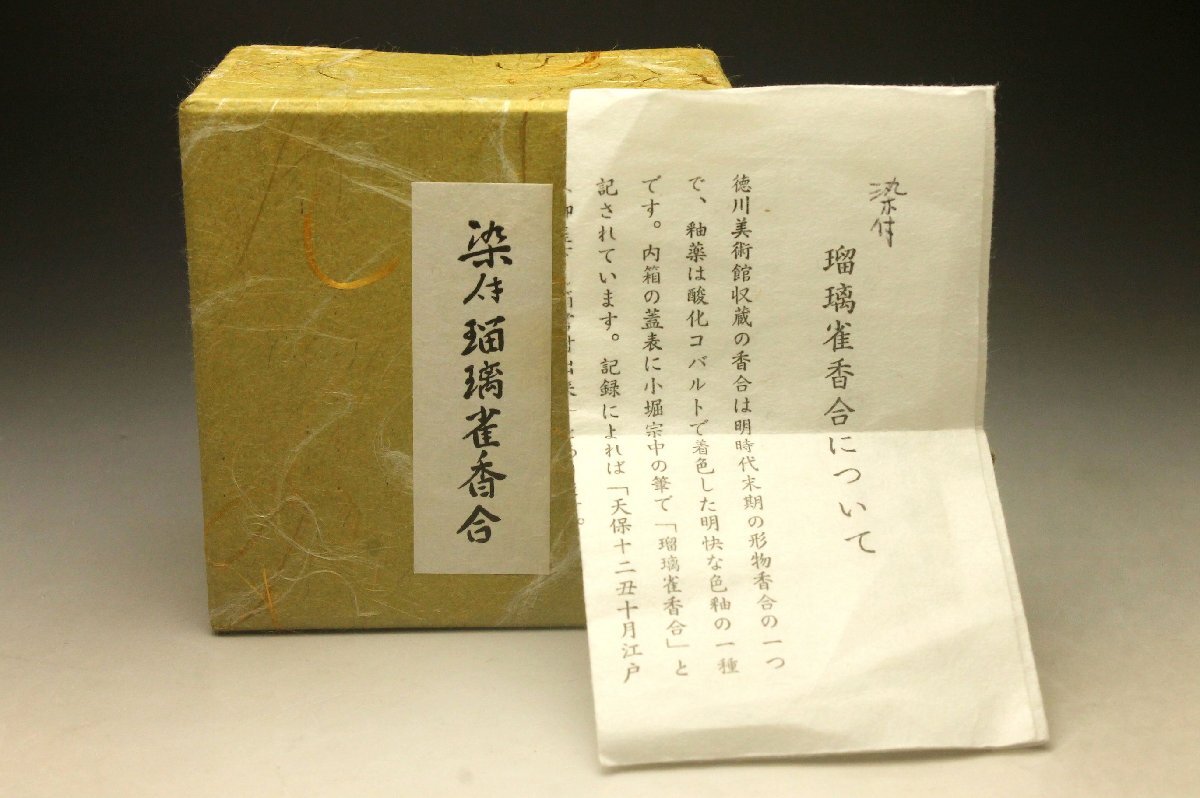 染付瑠璃雀香合
染付
瑠璃雀香合について
徳川美術館収蔵の香合は明時代末期の形物香合の一つ
で、釉薬は酸化コバルトで着色した明快な色釉の一種
です。内箱の蓋表に小堀宗中の筆で「瑠璃雀香合」と
記されています。記録によれば「天保十二丑十月江戸